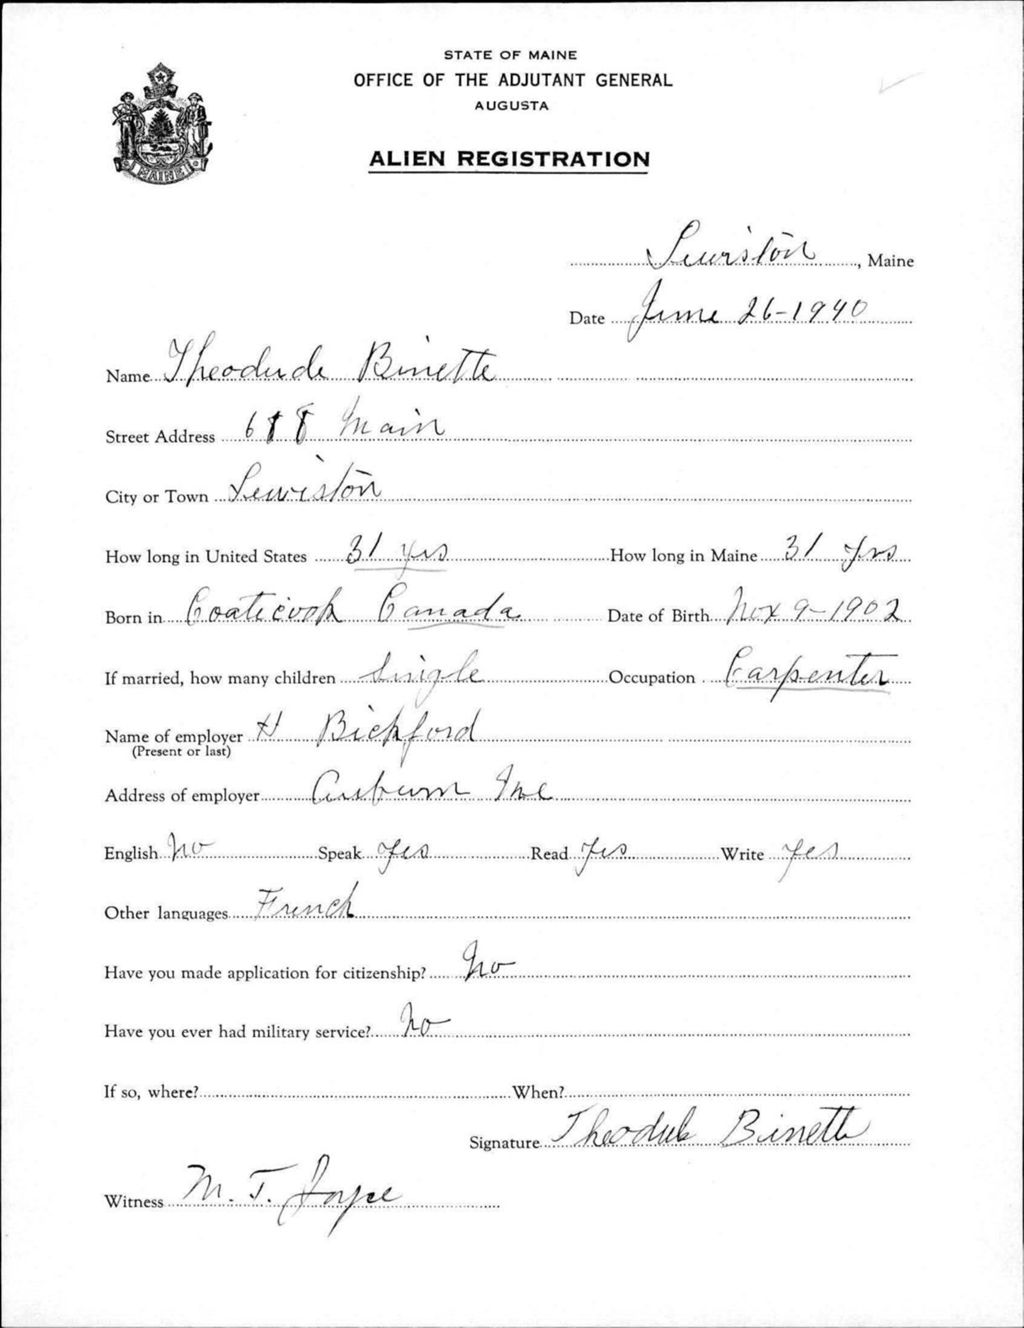 STATE OF MAINE
OFFICE OF THE ADJUTANT GENERAL
AUGUSTA
ALIEN REGISTRATION
MAINE
Lewiston, Maine
Date June 26-1940
Name Theodude Binette
Street Address 688 Main
City or Town Lewiston
How long in United States 31 yrs How long in Maine 31 yrs
Born in Coaticook Canada Date of Birth Nov 9-1902
If married, how many children Single Occupation Carpenter
Name of employer H Bickford
(Present or last)
Address of employer Auburn Me
English No Speak Yes Read Yes Write Yes
Other languages French
Have you made application for citizenship? No
Have you ever had military service? No
If so, where? When?
Signature Binette
Witness M. T. Joyce